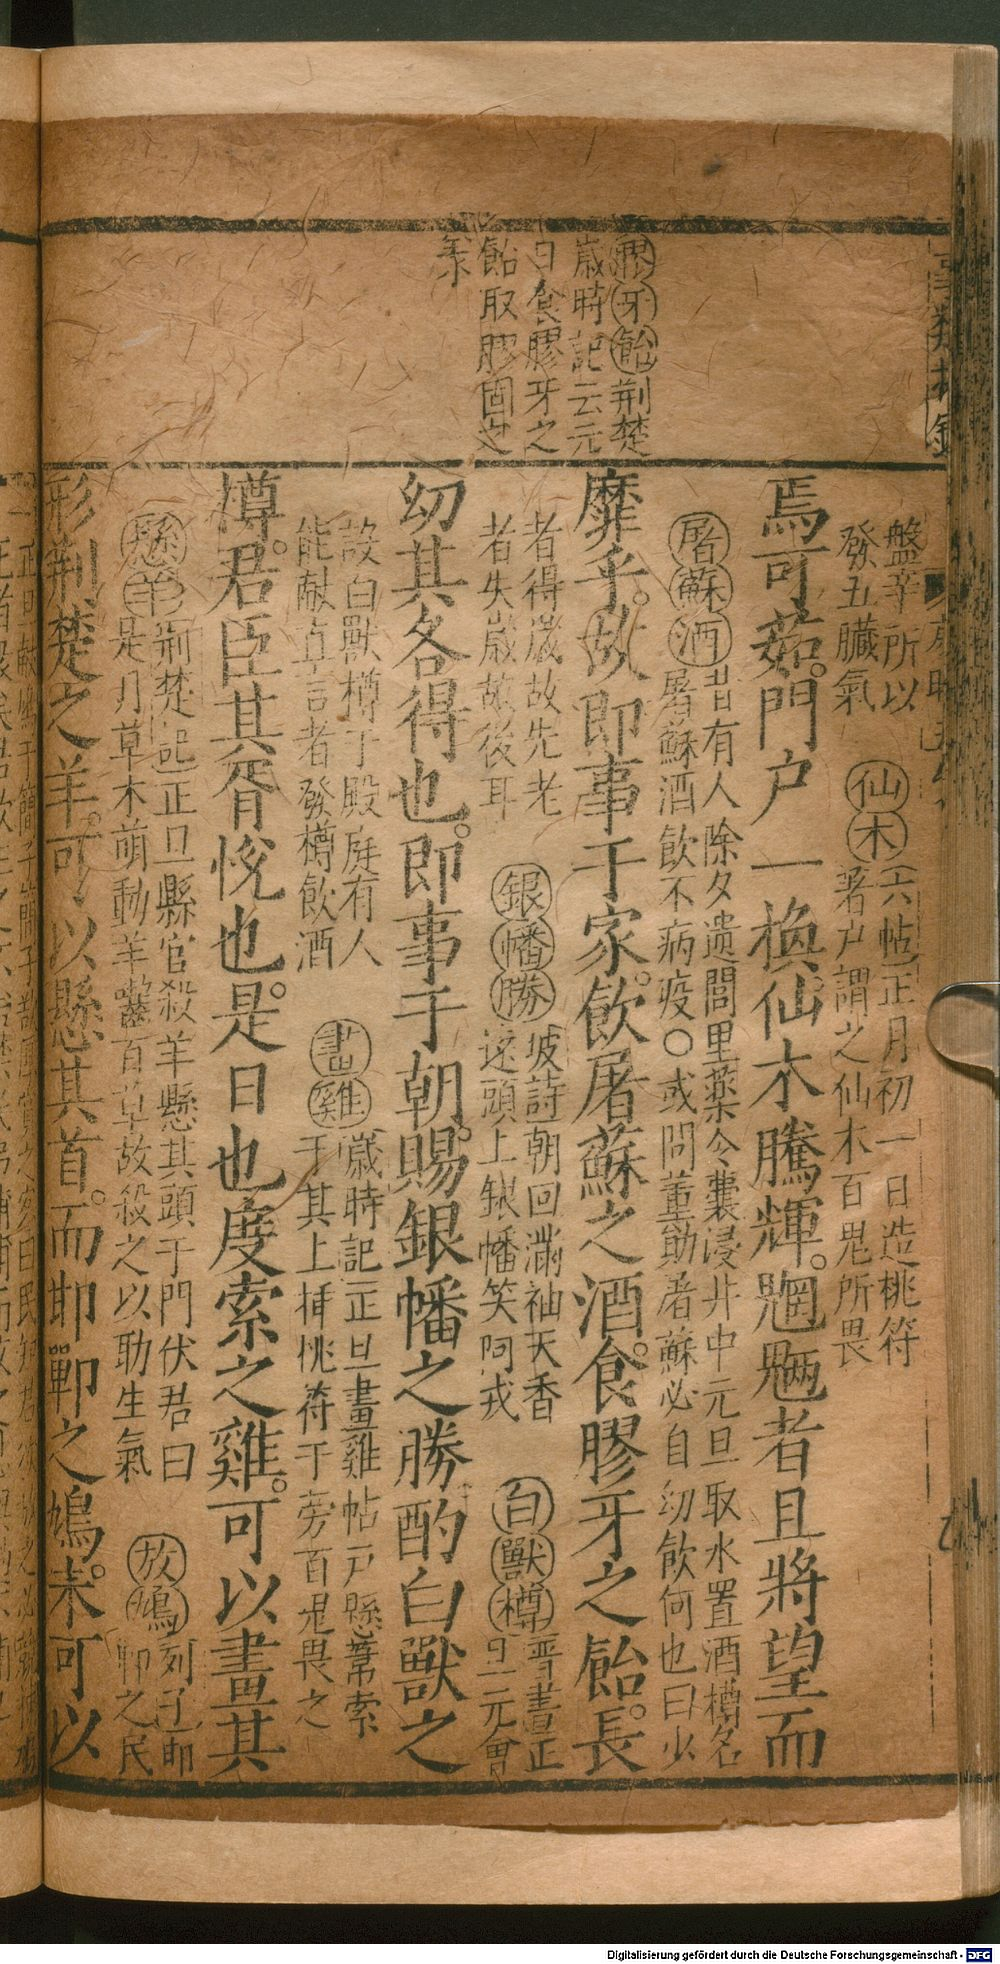 膠牙飴荆楚
歲時記云元
日食膠牙之
飴取膠固之
義
盤辛所以
發五臟氣
仙木
六帖正月初一日造桃符
著户謂之仙木百鬼所畏
焉可茹門户一換仙木騰輝。魍魎者且將望而
屠蘇酒
昔有人除夕遗閭里薬令囊浸井中元旦取水置酒樽名
屠蘇酒飲不病疫〇或問董勛屠蘇必自幼飲何也曰少
靡乎。故即事于家。飲屠蘇之酒。食膠牙之飴。長
者得歲故先老
者失歲故後耳
銀幡勝
坡詩朝回滿袖天香
遶頭上銀幡笑阿戎
白獸樽
晋書正
旦元會
幼其各得也。即事于朝。賜銀幡之勝。酌白獸之
設白獸樽于殿庭有人
能献直言者發樽飲酒
畫雞
歲時記正旦畫雞帖户懸葦索
于其上插桃符于旁百鬼畏之
樽。君臣其胥悦也。是日也度索之雞。可以畫其
懸羊
荆楚記正旦縣官殺羊懸其頭于門伏君曰
是月草木萌動羊齧百草故殺之以助生氣
放鳩
列子邯
鄲之民
形荆楚之羊。可以懸其首。而邯鄲之鳩。未可以
Digitalisierung gefördert durch die Deutsche Forschungsgemeinschaft - DFG